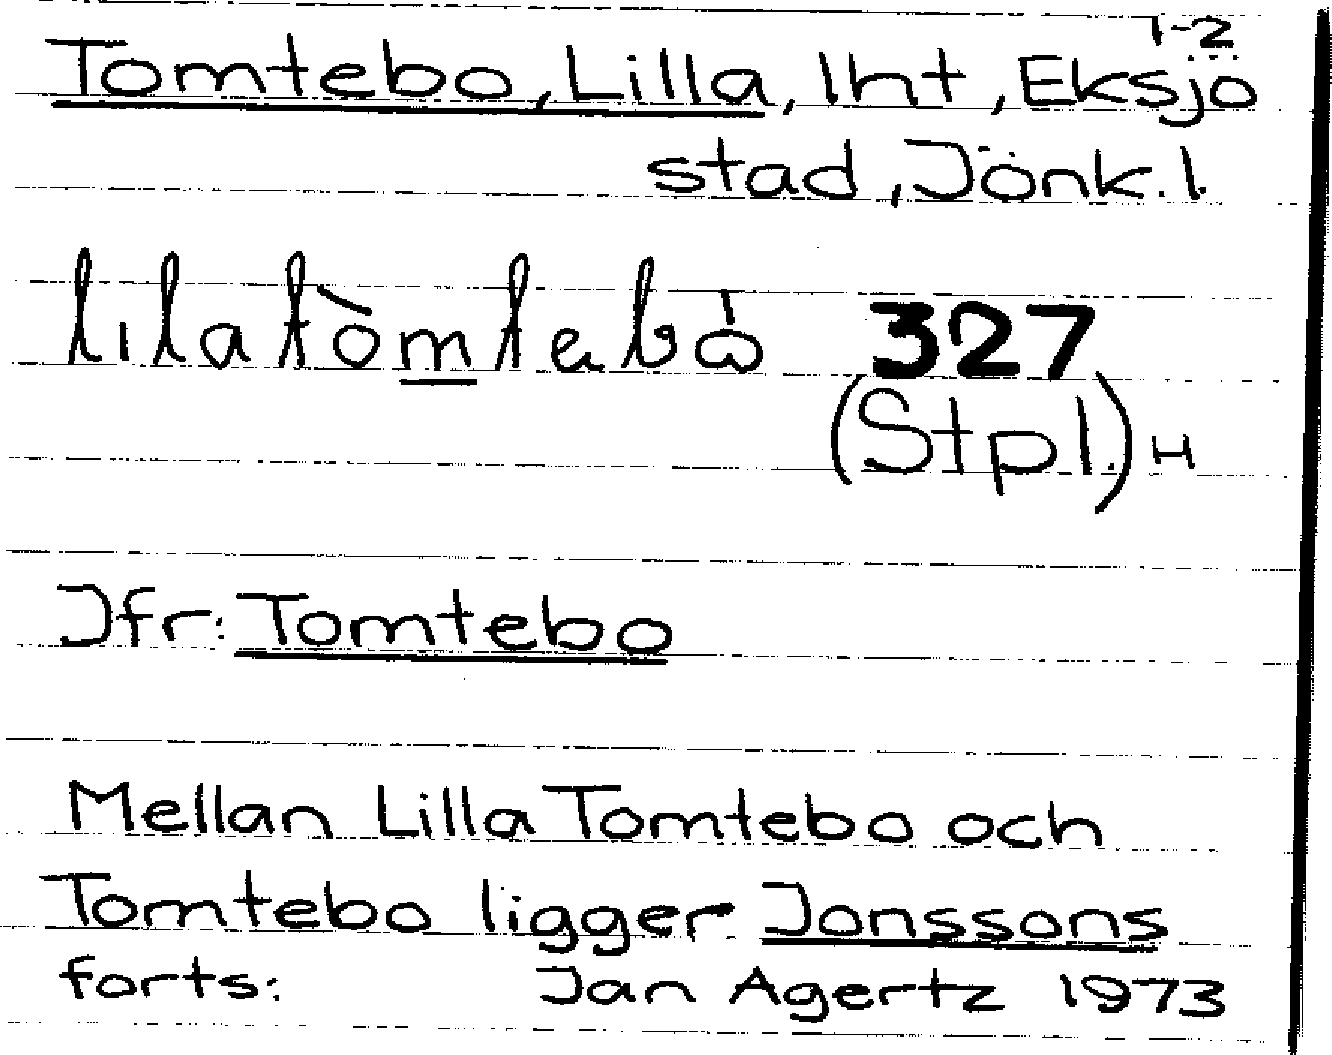 1-2
Tomtebo, Lilla, lht, Eksjö
stad, Jönk. l.
lilatòmtebȯ 327
(Stpl.) H
Jfr: Tomtebo
Mellan Lilla Tomtebo och
Tomtebo ligger Jonssons
forts: Jan Agertz 1973